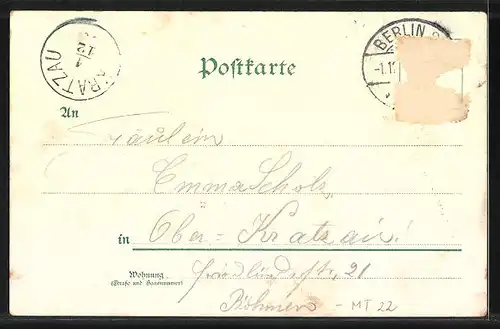 KRATZAU
1
12
BERLIN
-1.12
Postkarte
An
Fräulein
Emma Scholz
in Ober-Kratzau!
Wohnung
(Straße und Hausnummer)
Friedländerstr. 21
Böhmen - MT 22